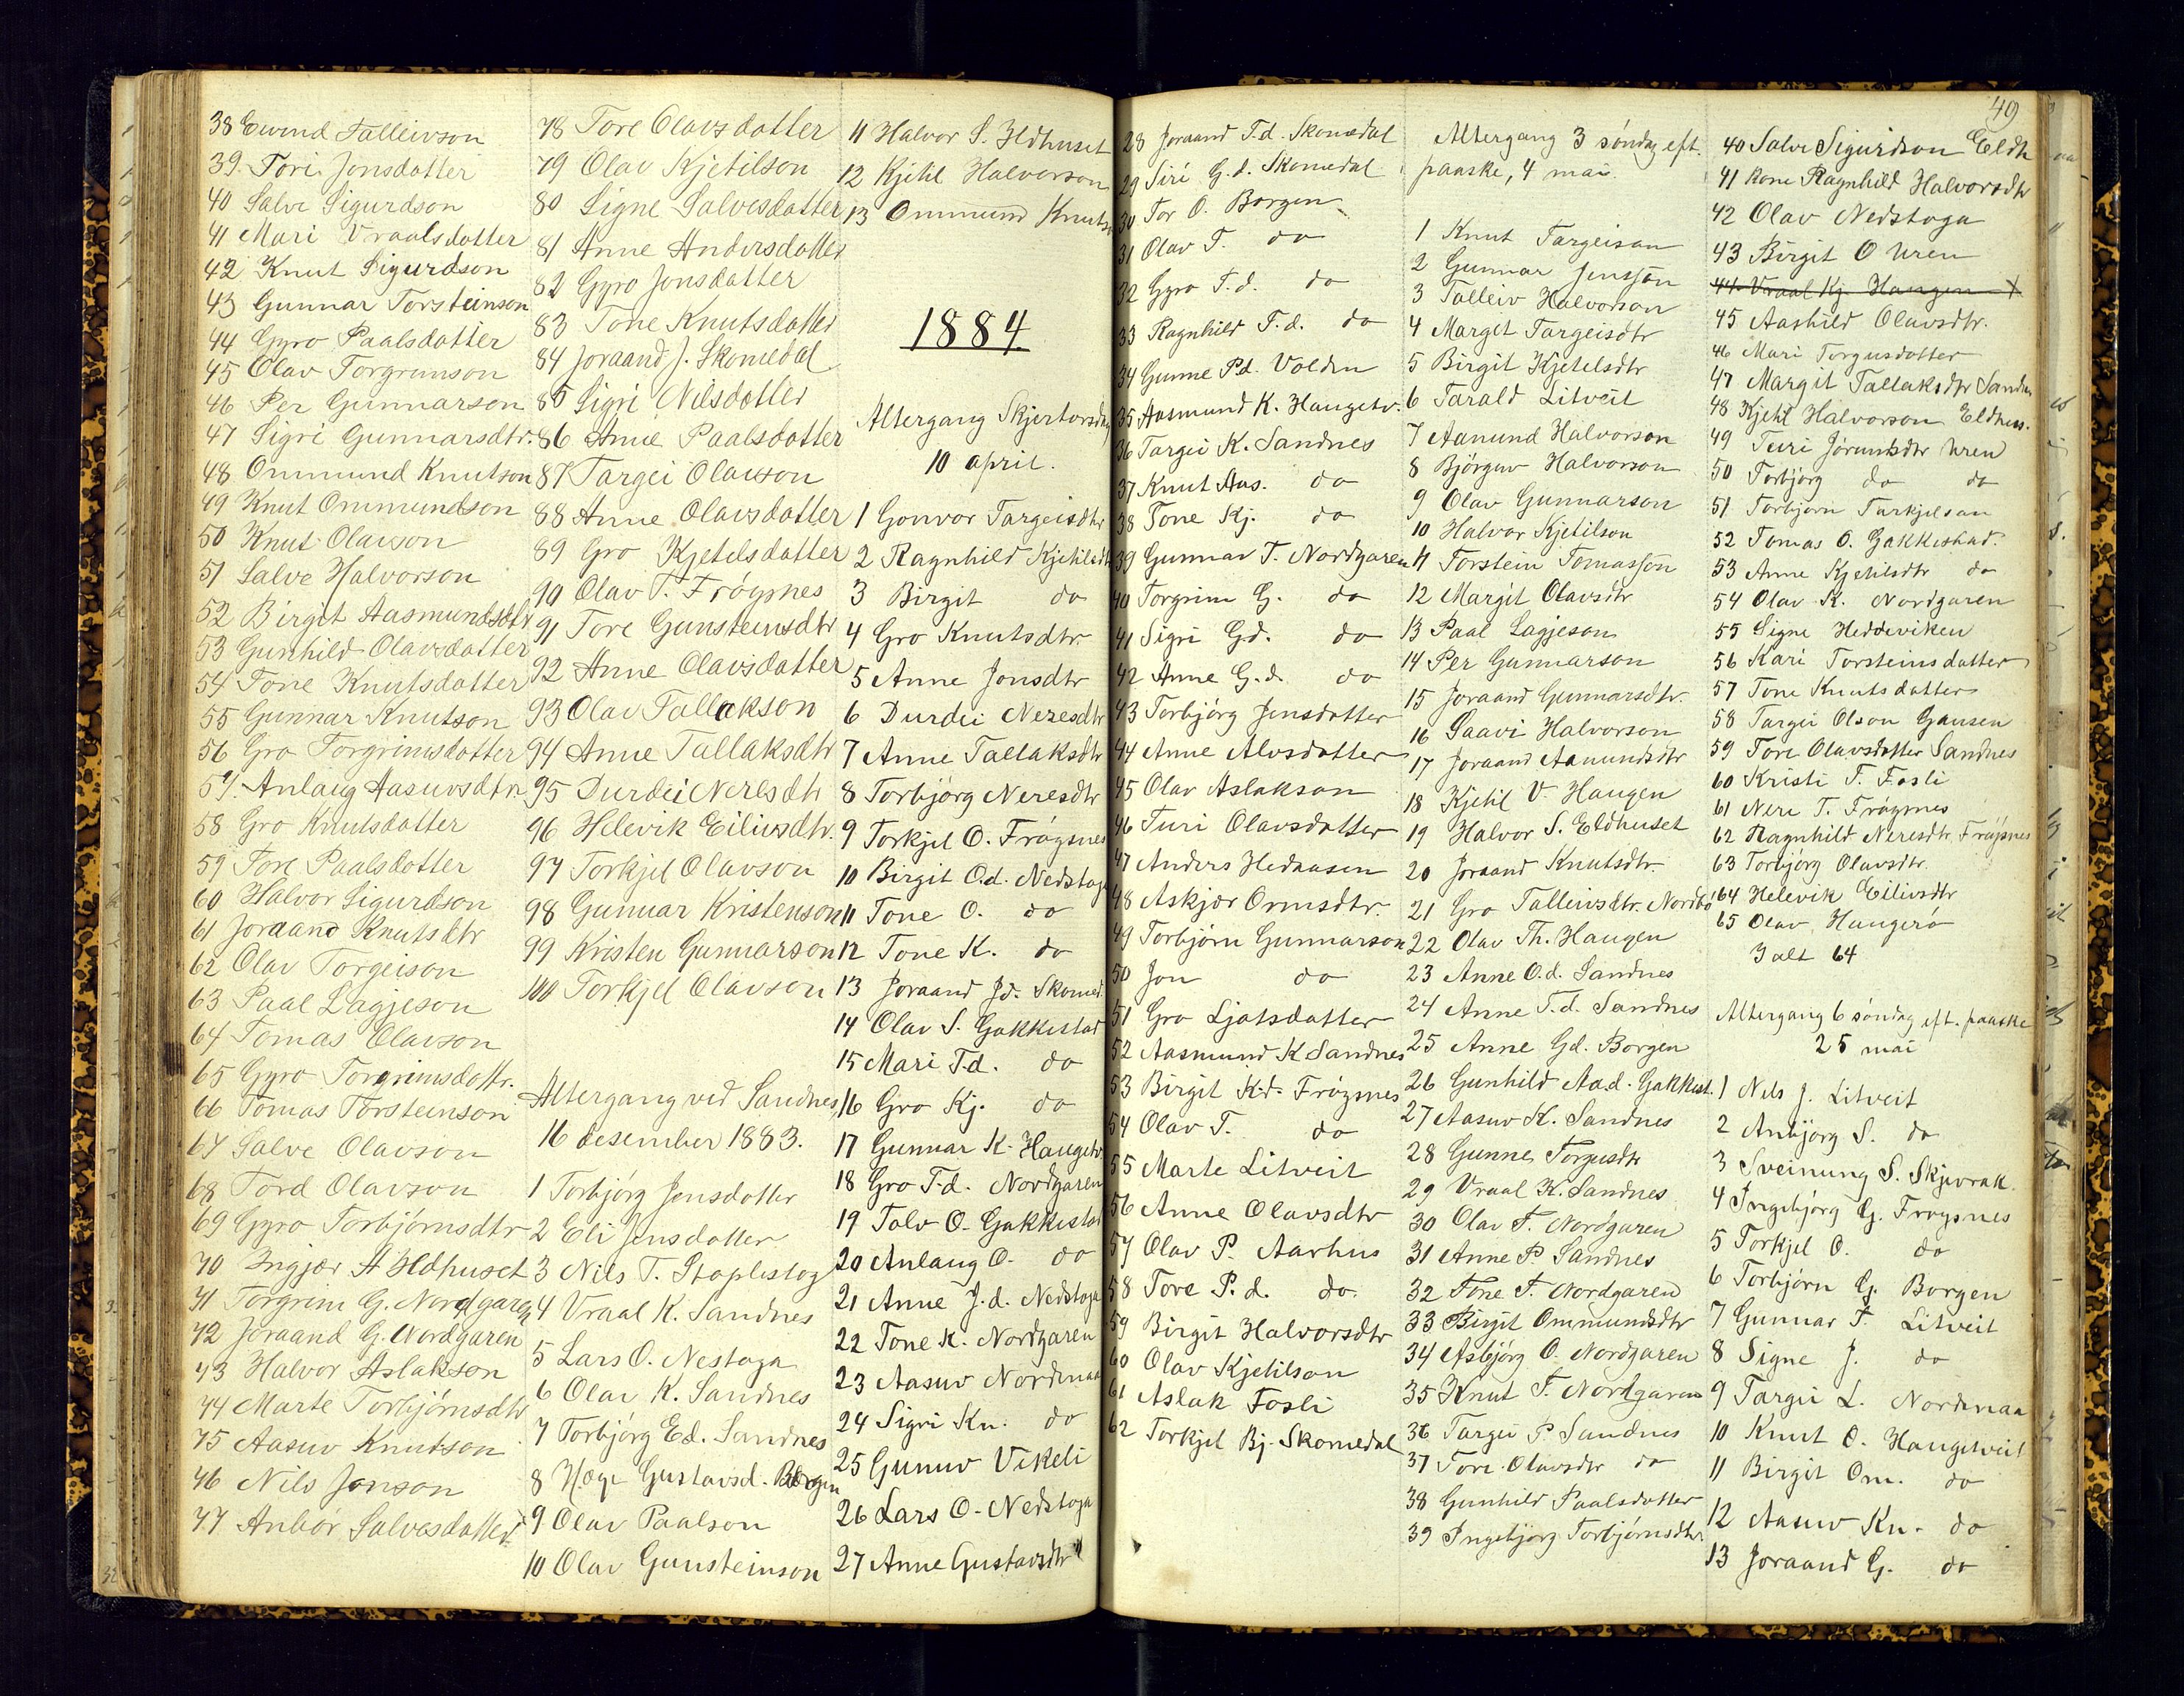 38 Eivind Talleivson
39. Tori Jonsdatter
40 Salve Sigurdson
41 Mari Vraalsdatter
42 Knut Sigurdson
43 Gunnar Torsteinson
44 Gyro Paalsdatter
45 Olav Torgrimson
46 Per Gunnarson
47 Sigri Gunnarsdtr.
48 Ommund Knutson
49 Knut Ommundson
50 Knut Olavson
51 Salve Halvorson
52 Birgit Aasmundsdtr
53 Gunhild Olavsdatter
54 Tone Knutsdatter
55 Gunnar Knutson
56 Gro Torgrimsdatter
57. Anlaug Aasuvsdtr.
58 Gro Knutsdatter
59 Tore Paalsdatter
60 Halvor Sigurdson
61 Joraand Knutsdtr
62 Olav Torgeison
63 Paal Lagjeson
64 Tomas Olavson
65 Gyro Torgrimsdattr.
66 Tomas Torsteinson
67 Salve Olavson
68 Tord Olavson
69 Gyro Torbjörnsdtr
70 Ingjer A Ildhuset
71 Torgrim G. Nordgaren
72 Joraand G. Nordgaren
73 Halvor Aslakson
74 Marte Torbjörnsdtr
75 Aasuv Knutson
76 Nils Jonson
77 Anbör Salvesdatter
78 Tore Olavsdatter
79 Olav Kjetilson
80 Signe Salvesdatter
81 Anne Andersdatter
82 Gyro Jonsdatter
83 Tone Knutsdatter
84 Joraand J. Skomedal
85 Sigri Nilsdatter
86 Anne Paalsdatter
87 Targei Olavson
88 Anne Olavsdatter
89 Gro Kjetelsdatter
90 Olav T. Fröysnes
91 Tore Gunsteinsdtr
92 Anne Olavsdatter
93 Olav Tallakson
94 Anne Tallaksdtr
95 Durdei Neresdtr
96 Helevik Eilivsdtr.
97 Torkjel Olavson
98 Gunnar Kristenson
99 Kristen Gunnarson
100 Torkjel Olavson
Altergang ved Sandnes,
16 desember 1883.
1 Torbjörg Jensdatter
2 Eli Jensdatter
3 Nils T. Staplestog
4 Vraal K. Sandnes
5 Lars O. Nestoga
6 Olav K. Sandnes
7 Torbjörg E.d. Sandnes
8 Hæge Gustavsd. Borgen
9 Olav Paalson
10 Olav Gunsteinson
11 Halvor S. Ildhuset
12 Kjetil Halvorson
13 Ommund Knutson
1884
Altergang Skjertorsdag
10 april.
1 Gonvor Targeisdtr
2 Ragnhild Kjetilsdtr
3 Birgit do
4 Gro Knutsdtr
5 Anne Jonsdtr
6 Durdei Neresdtr
7 Anne Tallaksdtr
8 Torbjörg Neresdtr
9 Torkjel O. Fröysnes
10 Birgit O.d. Nedstoga
11 Tone O. do
12 Tone K. do
13 Joraand J.d. Skomed.
14 Olav S. Gakkestad
15 Mari T.d. do
16 Gro Kj. do
17 Gunnar K. Haugetv.
18 Gro T.d. Nordgaren
19 Talv O. Gakkestad
20 Anlaug O. do
21 Anne J.d. Nedstoga
22 Tone K. Nordgaren
23 Aasuv Nordmaa
24 Sigri Kn. do
25 Gunuv Vikeli
26 Lars O. Nedstoga
27 Anne Gustavsdtr
28 Joraand T.d. Skomedal
29 Siri G.d. Skomedal
30 Tor O. Borgen
31 Olav T. do
32 Gyro T.d. do
33 Ragnhild T.d. do
34 Gunne P.d. Volden
35 Aasmund K. Haugetv.
36 Targei K. Sandnes
37 Knut Aas. do
38 Tone Kj. do
39 Gunnar T. Nordgaren
40 Torgrim G. do
41 Sigri G.d. do
42 Anne G.d. do
43 Torbjörg Jensdatter
44 Anne Alvsdatter
45 Olav Aslakson
46 Turi Olavsdatter
47 Anders Hedaasen
48 Askjær Ormsdtr.
49 Torbjörn Gunnarson
50 Jon do
51 Gro Ljotsdatter
52 Aasmund K Sandnes
53 Birgit K.d. Fröysnes
54 Olav T. do
55 Marte Litveit
56 Anne Olavsdtr
57 Olav P. Aarhus
58 Tore P.d. do.
59 Birgit Halvorsdtr
60 Olav Kjetilson
61 Aslak Fosli
62 Torkjel Bj. Skomedal
Altergang 3 söndag eft.
paaske, 4 mai.
1 Knut Targeison
2 Gunnar Jensson
3 Talleiv Halvorson
4 Margit Targeisdtr
5 Birgit Kjetelsdtr
6 Tarald Litveit
7 Aanund Halvorson
8 Björguv Halvorson
9 Olav Gunnarson
10 Halvor Kjetilson
11 Torstein Tomasson
12 Margit Olavsdtr
13 Paal Lagjeson
14 Per Gunnarson
15 Joraand Gunnarsdtr.
16 Saavi Halvorson
17 Joraand Aanundsdtr
18 Kjetil V. Haugen
19 Halvor S. Eldhuset
20 Joraand Knutsdtr.
21 Gro Talleivsdtr. Nordbö
22 Olav Th. Haugen
23 Anne O.d. Sandnes
24 Anne T.d. Sandnes
25 Anne G.d. Borgen
26 Gunhild Aa.d. Gakkest.
27 Aasuv K. Sandnes
28 Gunne Torgusdtr
29 Vraal K. Sandnes
30 Olav T. Nordgaren
31 Anne P. Sandnes
32 Tone T. Nordgaren
33 Birgit Ommundsdtr
34 Asbjörg O. Nordgaren
35 Knut T. Nordgaren
36 Targei P. Sandnes
37 Tore Olavsdtr do
38 Gunhild Paalsdatter
39 Ingebjörg Torbjörnsdtr.
49
40 Salve Sigurdson Eldh
41 kone Ragnhild Halvorsdtr
42 Olav Nedstoga
43 Birgit O Uren
44 Vraal Kj. Haugen +
45 Aashild Olavsdtr.
46 Mari Torgusdatter
47 Margit Tallaksdtr Sandn
48 Kjetil Halvorson Eldhus.
49 Turi Jörundsdtr Uren
50 Torbjörg do do
51 Torbjörn Torkjelson
52 Tomas O. Gakkestad.
53 Anne Kjetilsdtr do
54 Olav K. Nordgaren
55 Signe Heddeviken
56 Kari Torsteinsdatter
57 Tone Knutsdatter
58 Targei Olson Gausen
59 Tore Olavsdatter Sandnes
60 Kristi T. Fosli
61 Nere T. Fröysnes
62 Ragnhild Neresdtr Fröysnes
63 Torbjörg Olavsdtr
64 Helevik Eilivsdtr
65 Olav Haugerö
I alt 64
Altergang 6 söndag eft. paaske
25 mai
1 Nils J. Litveit
2 Anbjörg S. do
3 Sveinung S. Skjevrak.
4 Ingebjörg G. Fröysnes
5 Torkjel O. do
6 Torbjörn G. Borgen
7 Gunnar T. Litveit
8 Signe J. do
9 Targei L. Nordmaa
10 Knut O. Haugetveit
11 Birgit Om. do
12 Aasuv Kn. do
13 Joraand G. do